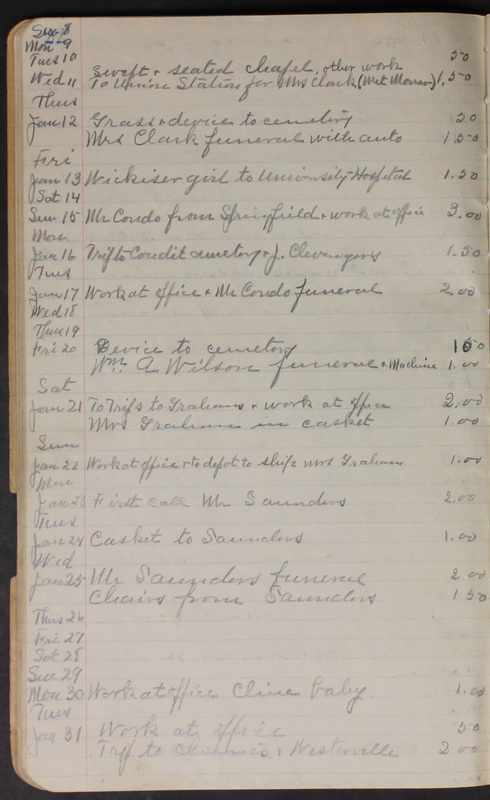 Sun 8
Mon 9
Tues 10 50
Wed 11 Swept & seated chapel, other work
To Union Station for Mrs Clark (Met Morrow) 1.50
Thus
Jan 12 Grass & device to cemetery 50
Mrs Clark funeral with auto 1 50
Fri
Jan 13 Wickiser girl to University Hospital 1.50
Sat 14
Sun 15 Mr Condo from Springfield & work at office 3.00
Mon
Jan 16 Trip to Condit cemetery & J. Clevengers 1.50
Tues
Jan 17 Work at office & Mr Condo funeral 2.00
Wed 18
Thu 19
Fri 20 Device to cemetery 50
Wm A Wilson funeral & Machine 1.00
Sat
Jan 21 To Trips to Grahams & work at office 2.00
Mrs Graham in casket 1.00
Sun
Jan 22 Work at office & to depot to ship mrs Graham 1.00
Mon
Jan 23 First call Mr Saunders 2.00
Tues
Jan 24 Casket to Saunders 1.00
Wed
Jan 25 Mr Saunders funeral 2 00
Chairs from Saunders 1 50
Thus 26
Fri 27
Sat 28
Sun 29
Mon 30 Work at office Cline baby 1.00
Tues
Jan 31 Work at office 50
Trip to & Westerville 2 00